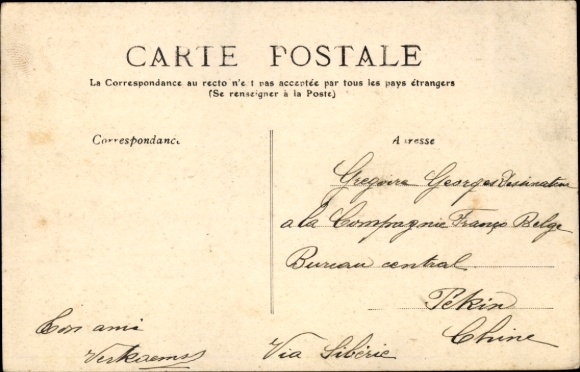 CARTE POSTALE
La Correspondance au recto n'est pas acceptée par tous les pays étrangers
(Se renseigner à la Poste)
Correspondance
Adresse
Gregoire Georges Dessinateur
a la Compagnie Franço Belge
Bureau central
Pékin
Chine
Ton ami
Verkaems
Via Sibérie